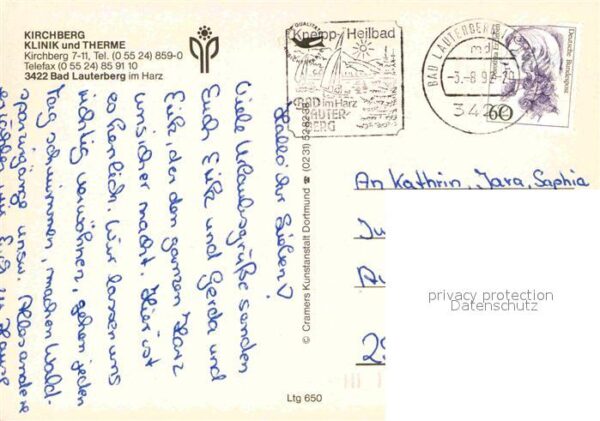 KIRCHBERG
KLINIK und THERME
Kirchberg 7-11, Tel. (0 55 24) 859-0
Telefax (0 55 24) 85 91 10
3422 Bad Lauterberg im Harz
Kneipp-Heilbad
BAD im Harz
LAUTER-
BERG
BAD LAUTERBERG
-3.-8.92-20
3420
Deutsche Bundespost
60
Hallo ihr Lieben!
Viele Urlaubsgrüße senden
Euch Eike und Gerda und
Eike, der den ganzen Harz
unsicher macht. Hier ist
es herrlich. Wir lassen uns
richtig verwöhnen, gehen jeden
Tag schwimmen, machen Wald-
spaziergänge usw. Alles andere
© Cramers Kunstanstalt Dortmund ☎ (02 31)
Ltg 650
An Kathrin, Jara, Saphia
privacy protection
Datenschutz